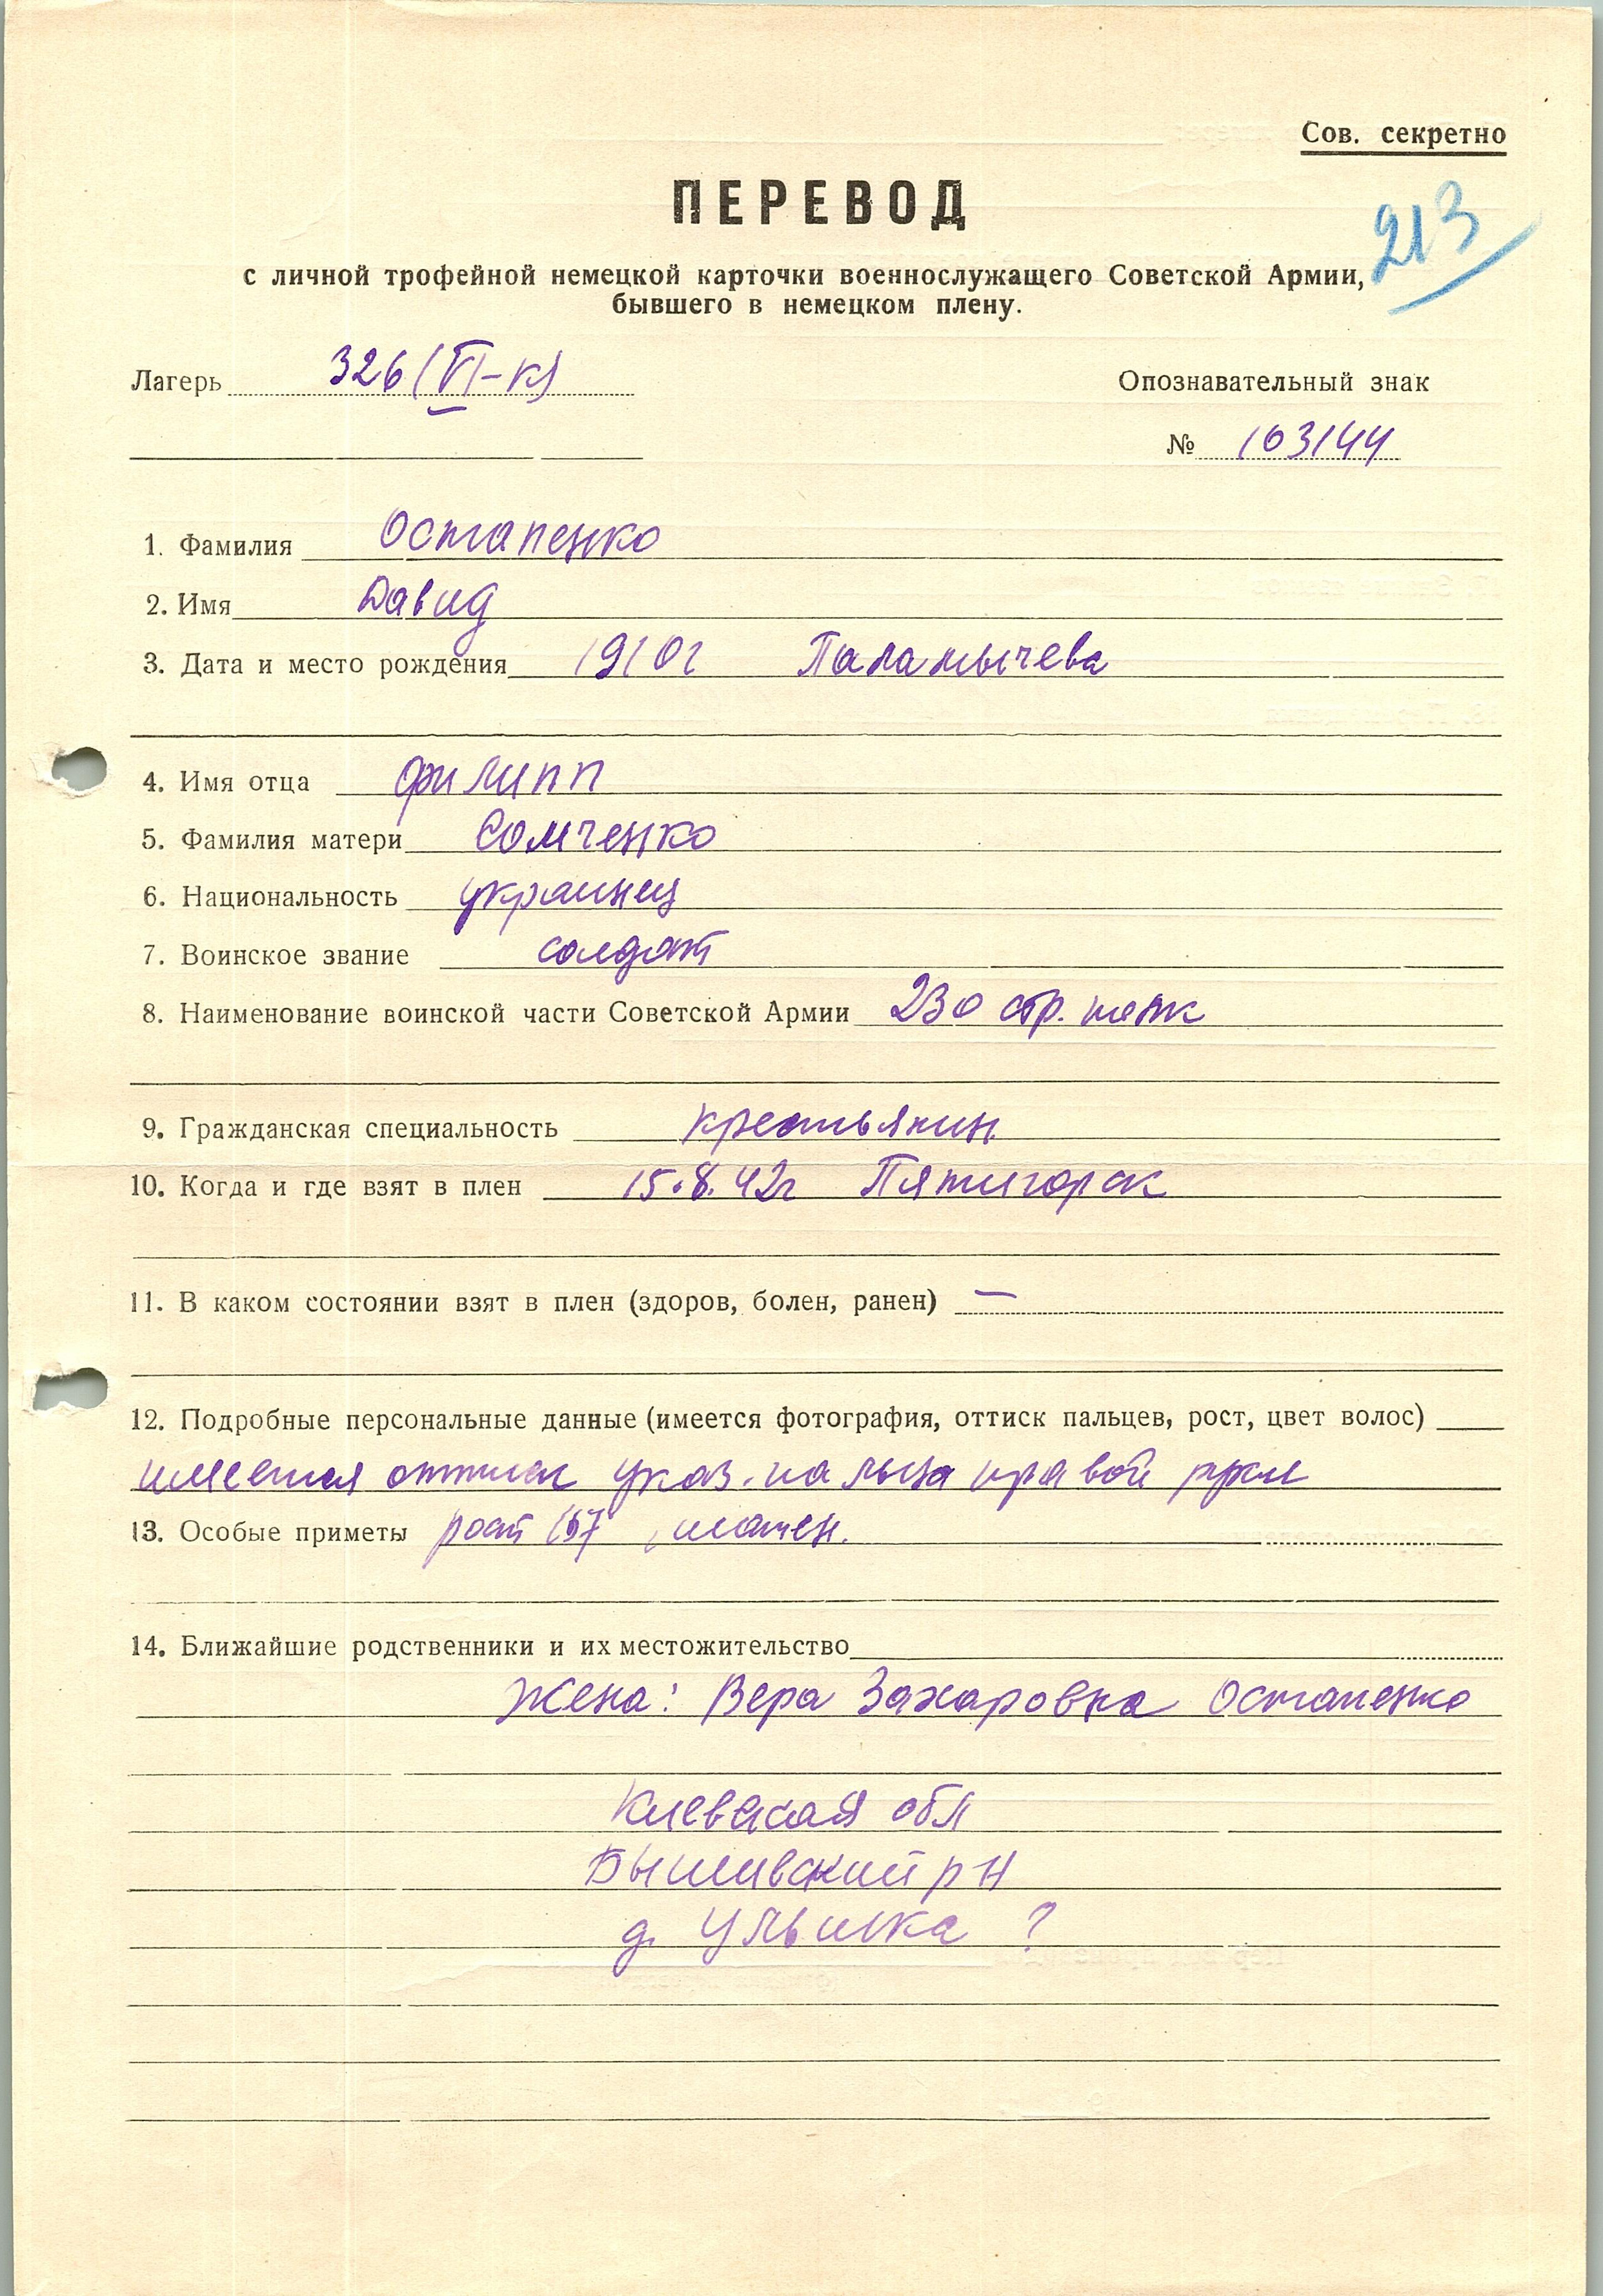 Сов. секретно
ПЕРЕВОД
213
с личной трофейной немецкой карточки военнослужащего Советской Армии,
бывшего в немецком плену.
Лагерь 326 (VI-К)
Опознавательный знак
№ 103144
1. Фамилия Остапенко
2. Имя Давид
3. Дата и место рождения 1910г Паламычева
4. Имя отца Филипп
5. Фамилия матери Сомченко
6. Национальность украинец
7. Воинское звание солдат
8. Наименование воинской части Советской Армии 230 стр. полк
9. Гражданская специальность крестьянин
10. Когда и где взят в плен 15.8.42г Пятигорск
11. В каком состоянии взят в плен (здоров, болен, ранен) —
12. Подробные персональные данные (имеется фотография, оттиск пальцев, рост, цвет волос)
имеется оттиск указ. пальца правой руки
13. Особые приметы рост 167
14. Ближайшие родственники и их местожительство
Жена: Вера Захаровна Остапенко
Киевская обл
Бышивский р н
д. Улышка ?